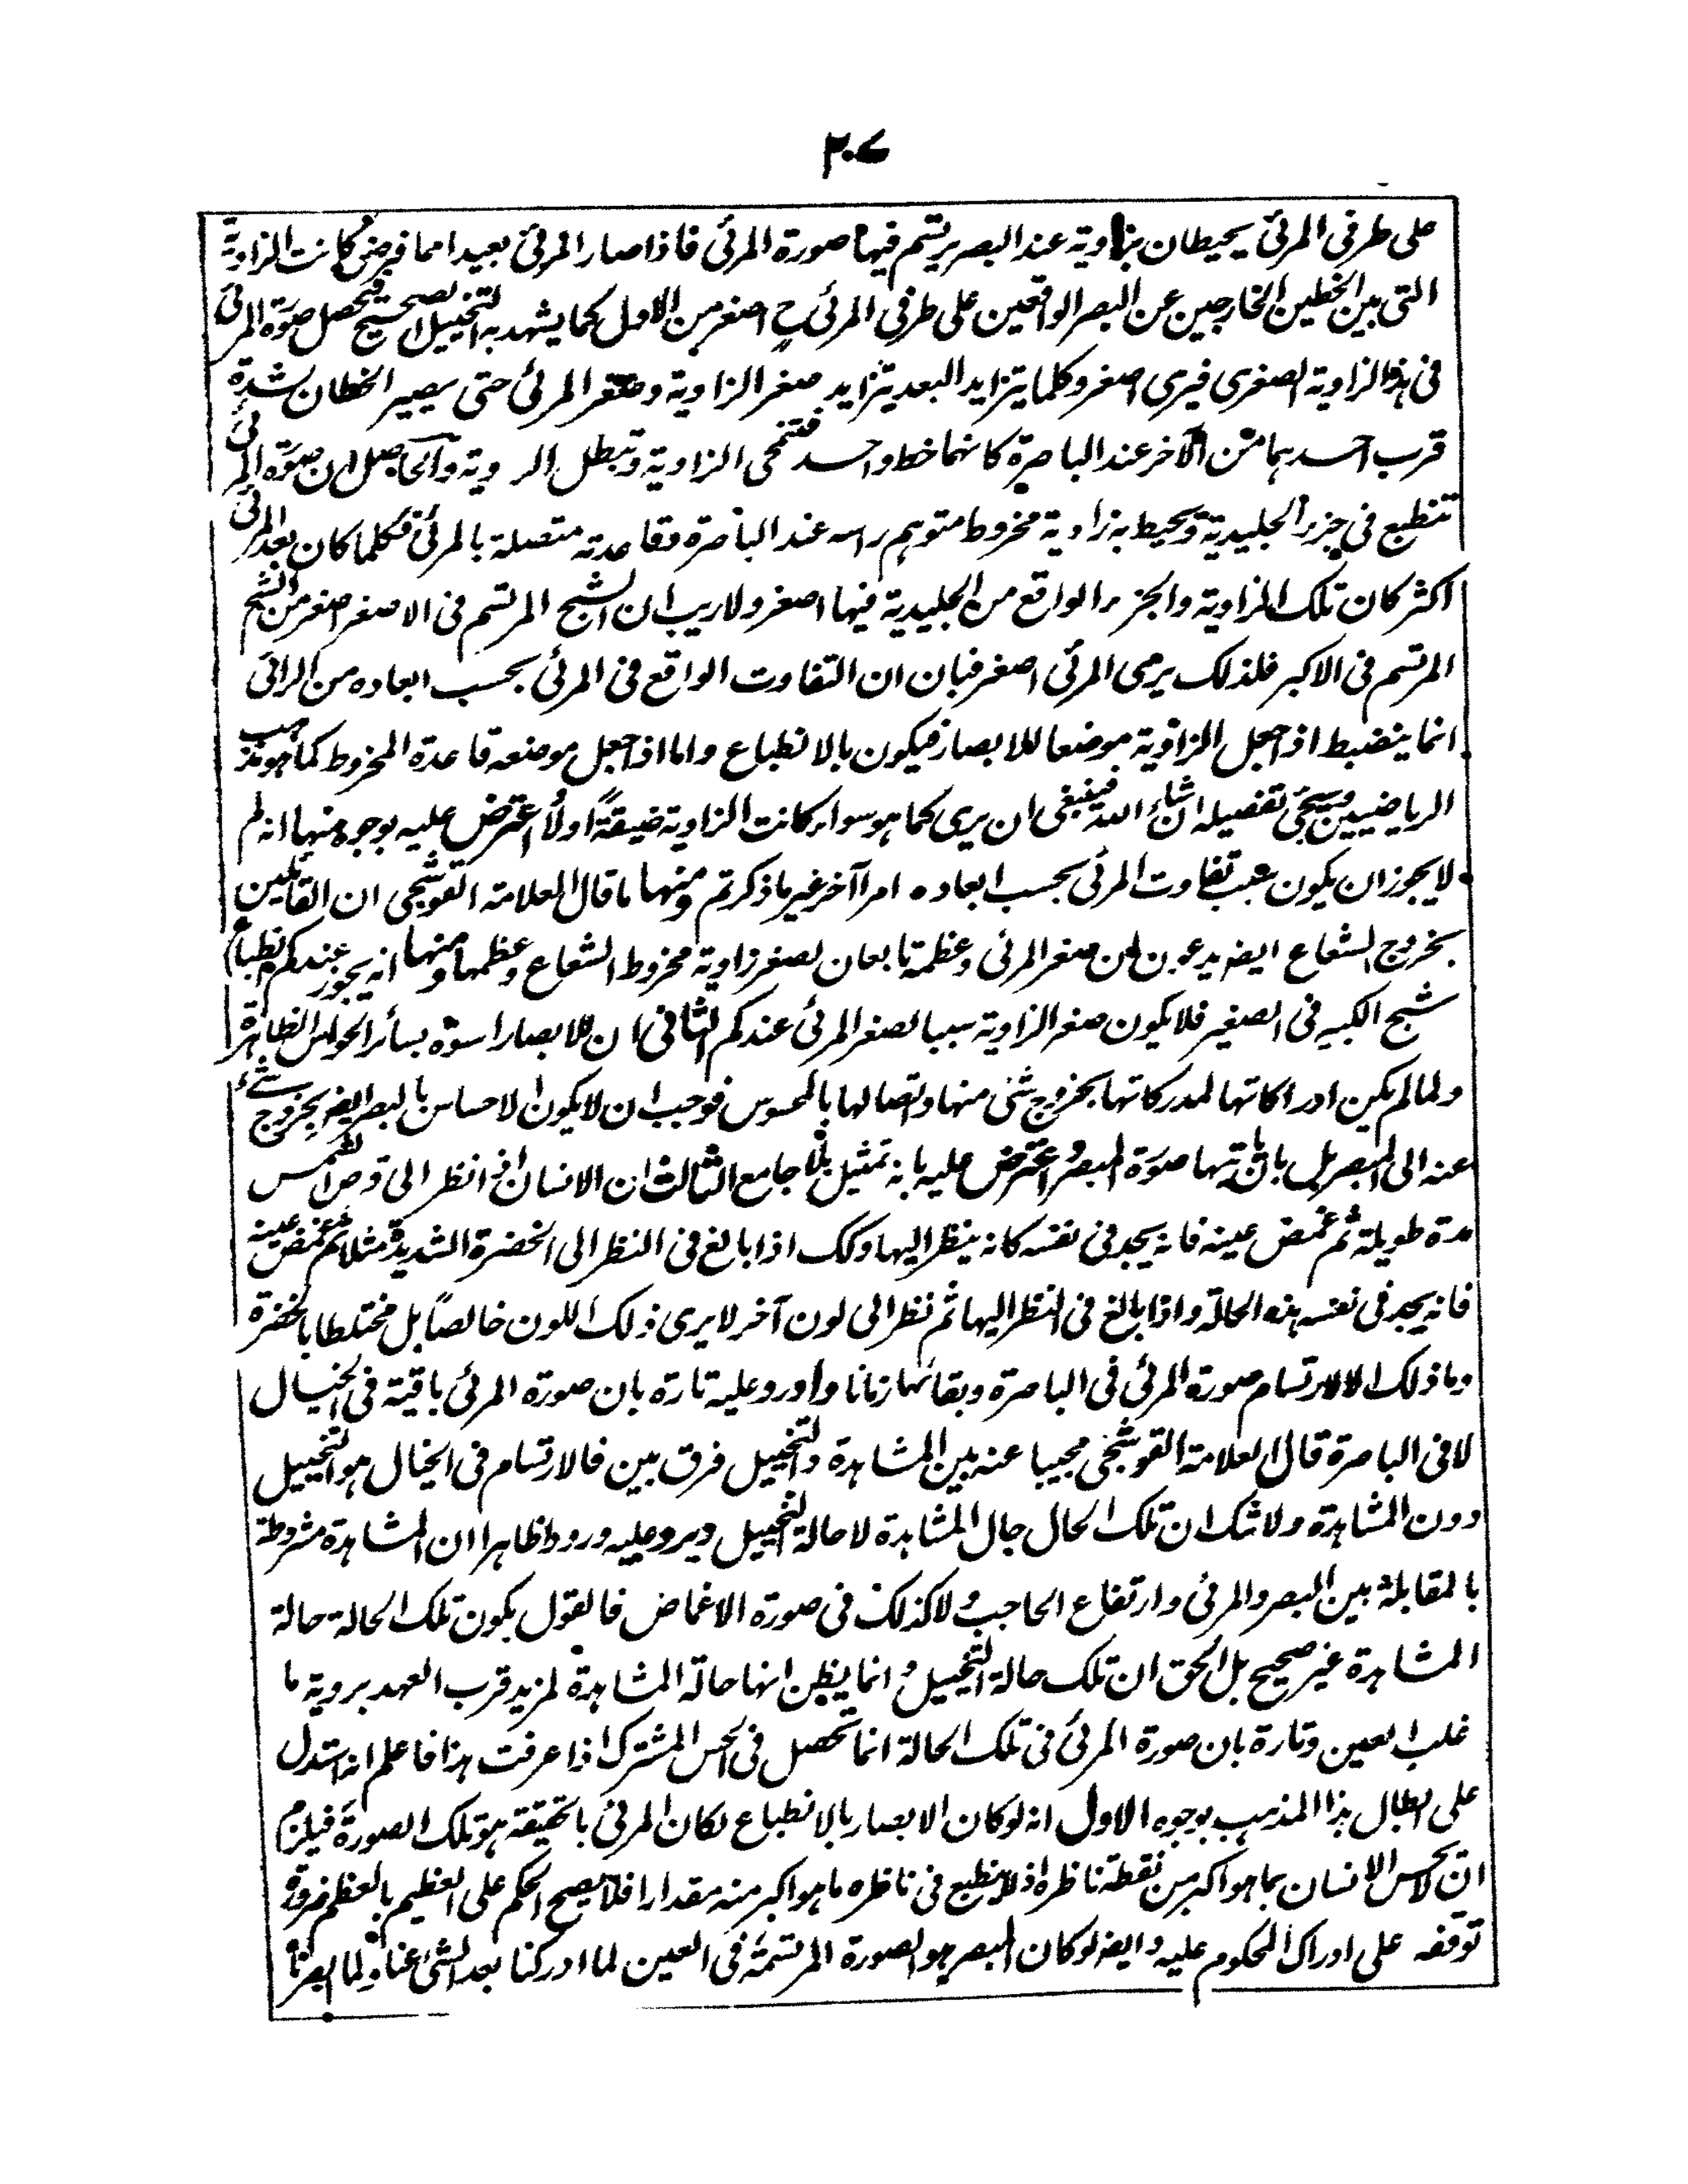 ٢٠٧
على طرفى المرئى يحيطان بزاوية عند البصر يرتسم فيها صورة المرئى فاذا صار المرئى بعيدا مما فرض كانت الزاوية
التى بين الخطين الخارجين عن البصر الواقعين على طرفى المرئى ح اصغر من الاول كما يشهد به التخييل الصحيح فتحصل صورة المرئى
فى هذه الزاوية الصغرى فيرى اصغر وكلما يتزايد البعد يتزايد صغر الزاوية وصغر المرئى حتى يصير الخطان لشدة
قرب احدهما من الآخر عند الباصرة كانهما خط واحد فتنمحى الزاوية وتبطل الروية والحاصل ان صورة المرئى
تنطبع فى جزء الجليدية ويحيط به زاوية مخروط متوهم راسه عند الباصرة وقاعدته متصلة بالمرئى فكلما كان بعد المرئى
اكثر كان تلك الزاوية والجزء الواقع من الجليدية فيها اصغر ولا ريب ان الشبح المرتسم فى الاصغر اصغر من الشبح
المرتسم فى الاكبر فلذلك يرى المرئى اصغر فبان ان التفاوت الواقع فى المرئى بحسب ابعاده من الرائى
انما ينضبط اذا جعل الزاوية موضعا للابصار فيكون بالانطباع واما اذا جعل موضعه قاعدة المخروط كما هو مذهب
الرياضيين وسيجئ تفصيله انشاء الله فينبغى ان يرى كما هو سواء كانت الزاوية ضيقة او لا اعترض عليه بوجوه منها انه لم
لا يجوز ان يكون سبب تفاوت المرئى بحسب ابعاده امرا آخر غير ما ذكرتم ومنها ما قال العلامة القوشجى ان القائلين
بخروج الشعاع ايضه يدعون ان صغر المرئى وعظمه تابعان لصغر زاوية مخروط الشعاع وعظمها ومنها انه يجوز عندكم انطباع
شبح الكبير فى الصغير فلا يكون صغر الزاوية سببا لصغر المرئى عندكم الثانى ان للابصار اسوة بسائر الحواس الظاهرة
ولما لم يكن ادراكاتها لمدركاتها بخروج شئ منها واتصالها بالمحسوس فوجب ان لا يكون الاحساس بالبصر ايضه بخروج شئ
عنه الى المبصر بل بان ياتيها صورة المبصر واعترض عليه بانه تمثيل بلا جامع الثالث ان الانسان اذا نظر الى قرص الشمس
مدة طويلة ثم غمض عينه فانه يجد فى نفسه كانه ينظر اليها وكك اذا بالغ فى النظر الى الخضرة الشديدة مثلا ثم غمض عينه
فانه يجد فى نفسه هذه الحالة واذا بالغ فى النظر اليها ثم نظر الى لون آخر لا يرى ذلك اللون خالصا بل مختلطا بالخضرة
وما ذلك الا لارتسام صورة المرئى فى الباصرة وبقائها زمانا واورد عليه تارة بان صورة المرئى باقية فى الخيال
لا فى الباصرة قال العلامة القوشجى مجيبا عنه بين المشاهدة والتخييل فرق بين فالارتسام فى الخيال هو التخييل
دون المشاهدة ولا شك ان تلك الحال حال المشاهدة لا حالة التخييل ويرد عليه ورودا ظاهرا ان المشاهدة مشروطة
بالمقابلة بين البصر والمرئى وارتفاع الحاجب ولا كذلك فى صورة الاغماض فالقول بكون تلك الحالة حالة
المشاهدة غير صحيح بل الحق ان تلك حالة التخييل وانما يظن انها حالة المشاهدة لمزيد قرب العهد بروية ما
غلب العين وتارة بان صورة المرئى فى تلك الحالة انما تحصل فى الحس المشترك اذا عرفت هذا فاعلم انه استدل
على ابطال هذا المذهب بوجوه الاول انه لو كان الابصار بالانطباع لكان المرئى بالحقيقة هو تلك الصورة فيلزم
ان لا يحس الانسان بما هو اكبر من نقطة ناظره اذ لا ينطبع فى ناظره ما هو اكبر منه مقدارا فلا يصح الحكم على العظيم بالعظم ضرورة
توقفه على ادراك المحكوم عليه وايضه لو كان المبصر هو الصورة المرتسمة فى العين لما ادركنا بعد الشئ عنا ولما ابصرنا